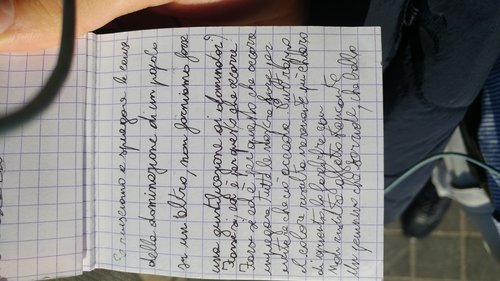 Se riusciamo a spiegare le cause
della dominazione di un popolo
su un altro, non forniamo forse
una giustificazione ai dominatori?
Forse sì, ed è per questo che occorre
Forse sì ed è per questo che occorre
impiegare tutte le nostre forze per
evitare che ciò accada. Purtroppo
il colore risulta veramente più chiaro
di quanto lo farebbe con
Non risulta affatto stancante
Un gemino che sorride, che balla